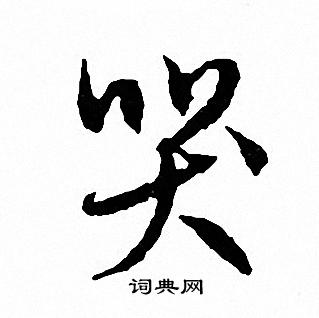 哭
词典网